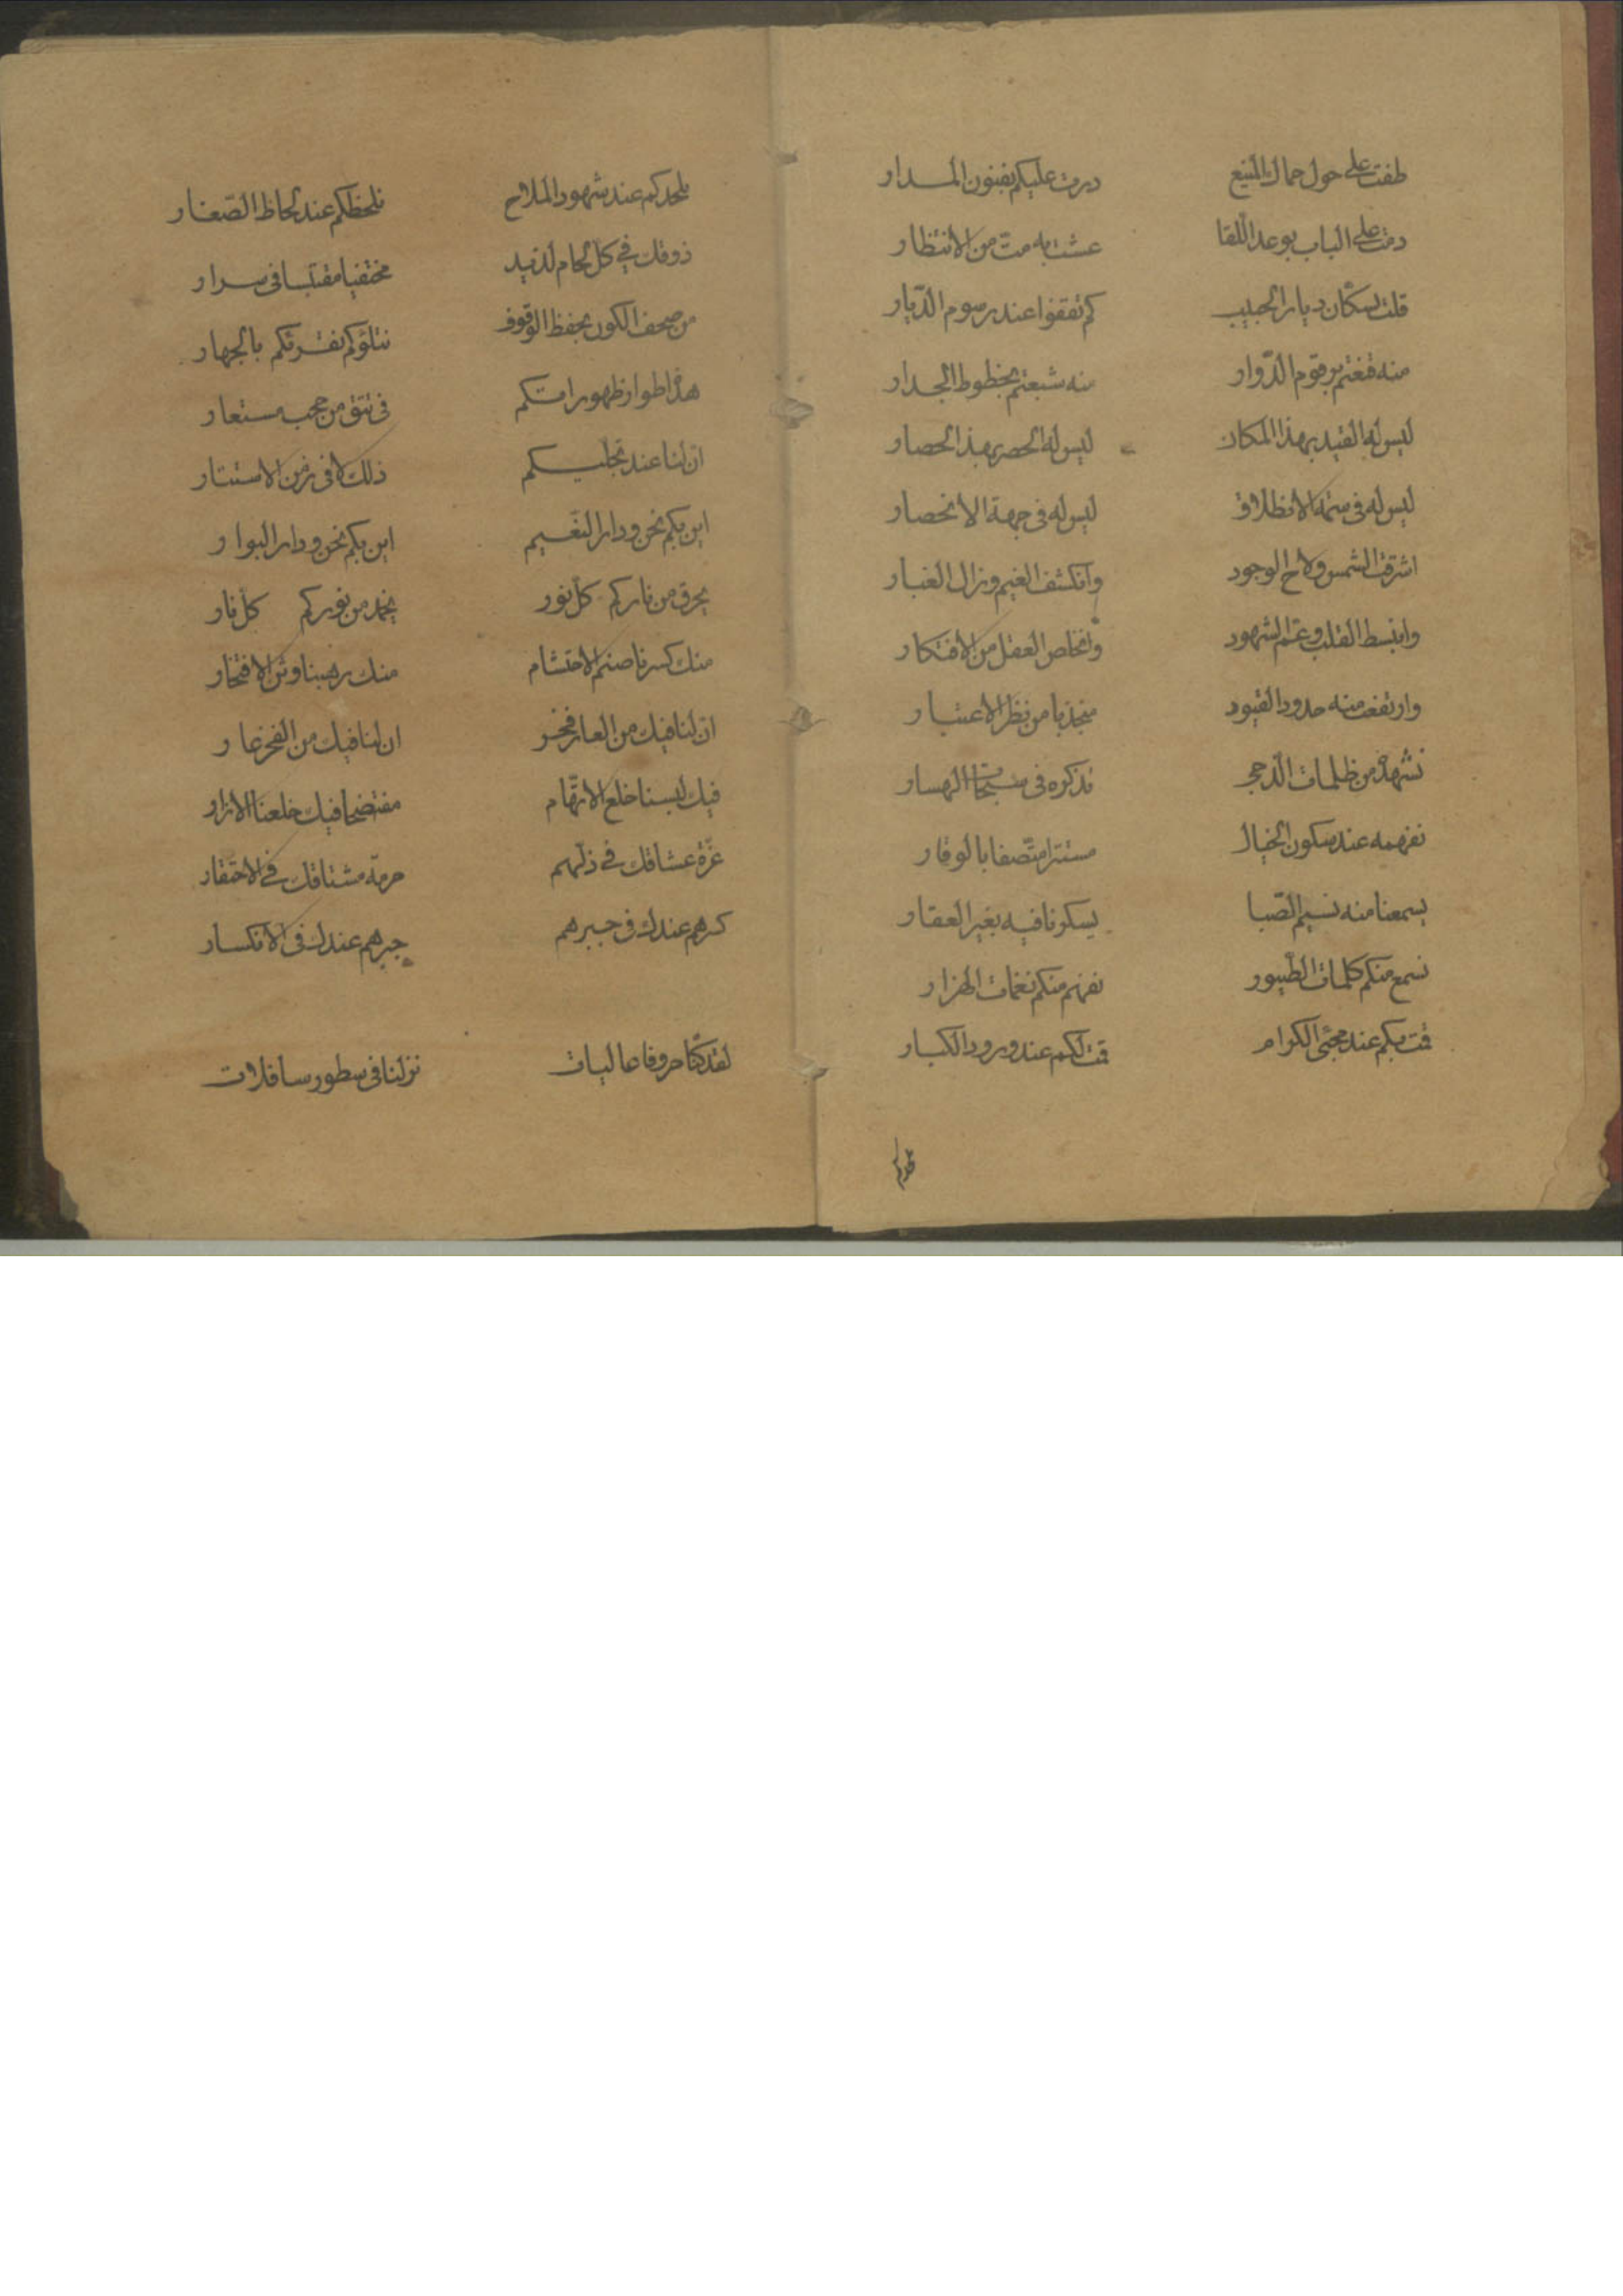 طفت على حول حمال المنيع درت عليكم بفنون المدار
دمت على الباب بوعد اللقا عشت به مت من الانتظار
قلت لسكان ديار الحبيب كم تقفوا عند رسوم الديار
منه قنعتم برقوم الدوار منه شبعتم بخطوط الجدار
ليس له القيد بهذا المكان ليس له الحصر بهذا الحصار
ليس له في سمة الانطلاق ليس له في جهة الانحصار
اشرقت الشمس ولاح الوجود وانكشف الغيم وزال الغبار
وانبسط القلب وعم الشهود وانخاص العقل من الافتكار
وارتفعت منه حدود القيود منجذبا من نظر الاعتبار
نشهده من ظلمات الدجى نذكره في سبحات
نفهمه عند سكون الخيال مستترا متصفا بالوقار
يسمعنا منه نسيم الصبا يسكرنا فيه بغير العقار
نسمع منكم كلمات الطيور نفهم منكم نغمات الهزار
قمت بكم عند مجئ الكرام قمت لكم عند ورود الكبار
عند شهود الملاح نلحظكم عند لحاظ الصغار
ذوقك في كل لذيذ مختفيا مقتبسا في سرار
من صحف الكون بحفظ الوقوف نتلوكم نقرئكم بالجهار
هذا اطوار ظهوراتكم في تتق من حجب مستعار
ان لنا عند تجليكم ذلك لا في زمن الاستتار
اين بكم نحن ودار النعيم اين بكم نحن ودار البوار
يحرق من ناركم كل نور يخمد من نوركم كل نار
منك كسرنا صنم الاحتشام منك رهبنا وثن الافتخار
ان لنا فيك من العار فخر ان لنا فيك من الفخر عار
فيك لبسنا خلع الاتهام مفتضحا فيك خلعنا الازار
عزة عشاقك في ذلهم حرمة مشتاقك في الاحتقار
كسرهم عندك في جبرهم جبرهم عندك في الانكسار
لقد كنا حروفا عاليات نزلنا في سطور سافلات